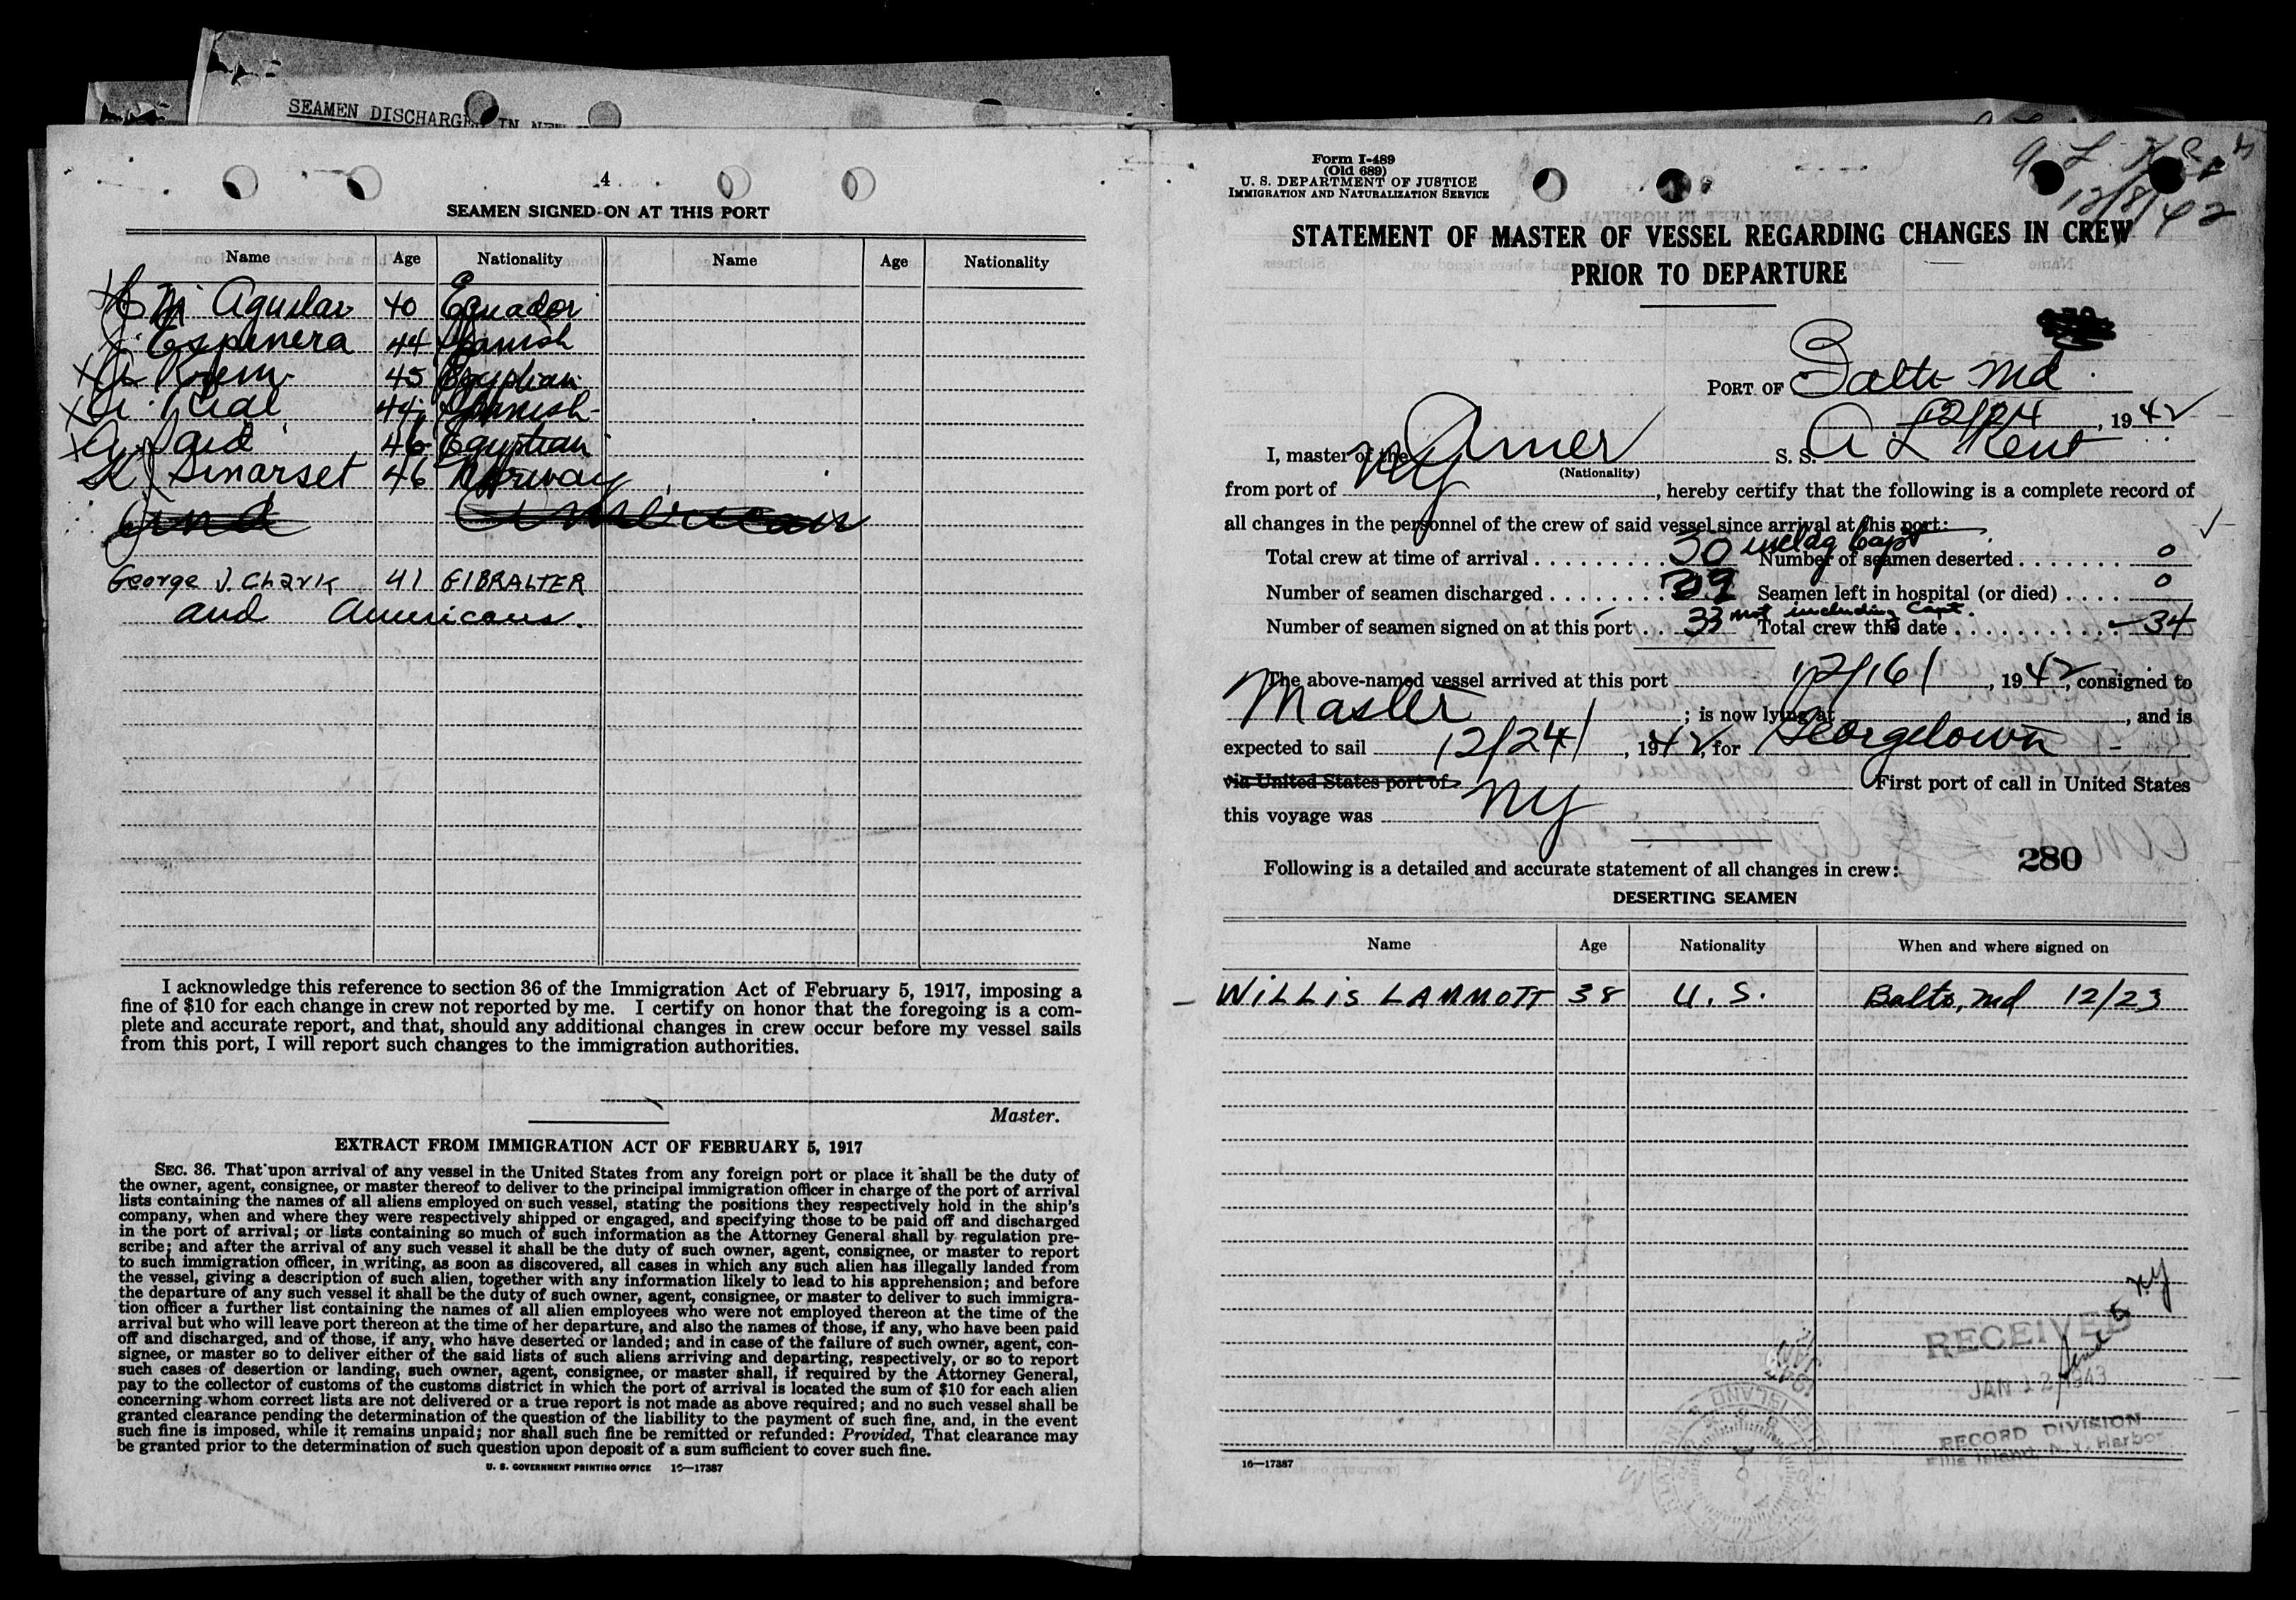 SEAMEN DISCHARGED IN
4
SEAMEN SIGNED ON AT THIS PORT
Name Age Nationality Name Age Nationality
M Aguilar 40 Ecuador
Espinera 44 Spanish
45 Egyptian
44 Spanish
Said 46 Egyptian
46 Norway
and American
George J. Clark 41 GIBRALTER
and Americans.
I acknowledge this reference to section 36 of the Immigration Act of February 5, 1917, imposing a
fine of $10 for each change in crew not reported by me. I certify on honor that the foregoing is a com-
plete and accurate report, and that, should any additional changes in crew occur before my vessel sails
from this port, I will report such changes to the immigration authorities.
Master.
EXTRACT FROM IMMIGRATION ACT OF FEBRUARY 5, 1917
SEC. 36. That upon arrival of any vessel in the United States from any foreign port or place it shall be the duty of
the owner, agent, consignee, or master thereof to deliver to the principal immigration officer in charge of the port of arrival
lists containing the names of all aliens employed on such vessel, stating the positions they respectively hold in the ship's
company, when and where they were respectively shipped or engaged, and specifying those to be paid off and discharged
in the port of arrival; or lists containing so much of such information as the Attorney General shall by regulation pre-
scribe; and after the arrival of any such vessel it shall be the duty of such owner, agent, consignee, or master to report
to such immigration officer, in writing, as soon as discovered, all cases in which any such alien has illegally landed from
the vessel, giving a description of such alien, together with any information likely to lead to his apprehension; and before
the departure of any such vessel it shall be the duty of such owner, agent, consignee, or master to deliver to such immigra-
tion officer a further list containing the names of all alien employees who were not employed thereon at the time of the
arrival but who will leave port thereon at the time of her departure, and also the names of those, if any, who have been paid
off and discharged, and of those, if any, who have deserted or landed; and in case of the failure of such owner, agent, con-
signee, or master so to deliver either of the said lists of such aliens arriving and departing, respectively, or so to report
such cases of desertion or landing, such owner, agent, consignee, or master shall, if required by the Attorney General,
pay to the collector of customs of the customs district in which the port of arrival is located the sum of $10 for each alien
concerning whom correct lists are not delivered or a true report is not made as above required; and no such vessel shall be
granted clearance pending the determination of the question of the liability to the payment of such fine, and, in the event
such fine is imposed, while it remains unpaid; nor shall such fine be remitted or refunded: Provided, That clearance may
be granted prior to the determination of such question upon deposit of a sum sufficient to cover such fine.
U. S. GOVERNMENT PRINTING OFFICE 16—17387
Form I-489
(Old 689)
U. S. DEPARTMENT OF JUSTICE
IMMIGRATION AND NATURALIZATION SERVICE
A. L. Kent
12/8/42
STATEMENT OF MASTER OF VESSEL REGARDING CHANGES IN CREW
PRIOR TO DEPARTURE
PORT OF Balto Md.
12/24, 1942
I, master of the Amer S. S. A L Kent
(Nationality)
from port of NY, hereby certify that the following is a complete record of
all changes in the personnel of the crew of said vessel since arrival at this port:
Total crew at time of arrival 30 incldg Capt Number of seamen deserted 0
Number of seamen discharged 29 Seamen left in hospital (or died) 0
Number of seamen signed on at this port 33 not including Capt. Total crew this date 34
The above-named vessel arrived at this port 12/16/, 1942, consigned to
Master; is now lying at, and is
expected to sail 12/24/, 1942, for Georgetown
via United States port of First port of call in United States
this voyage was NY
280
Following is a detailed and accurate statement of all changes in crew:
DESERTING SEAMEN
Name Age Nationality When and where signed on
WILLIS LAMMOTT 38 U.S. Balto, Md 12/23
RECEIVED
JAN 12 1943
RECORD DIVISION
Ellis Island, N.Y. Harbor
16—17387